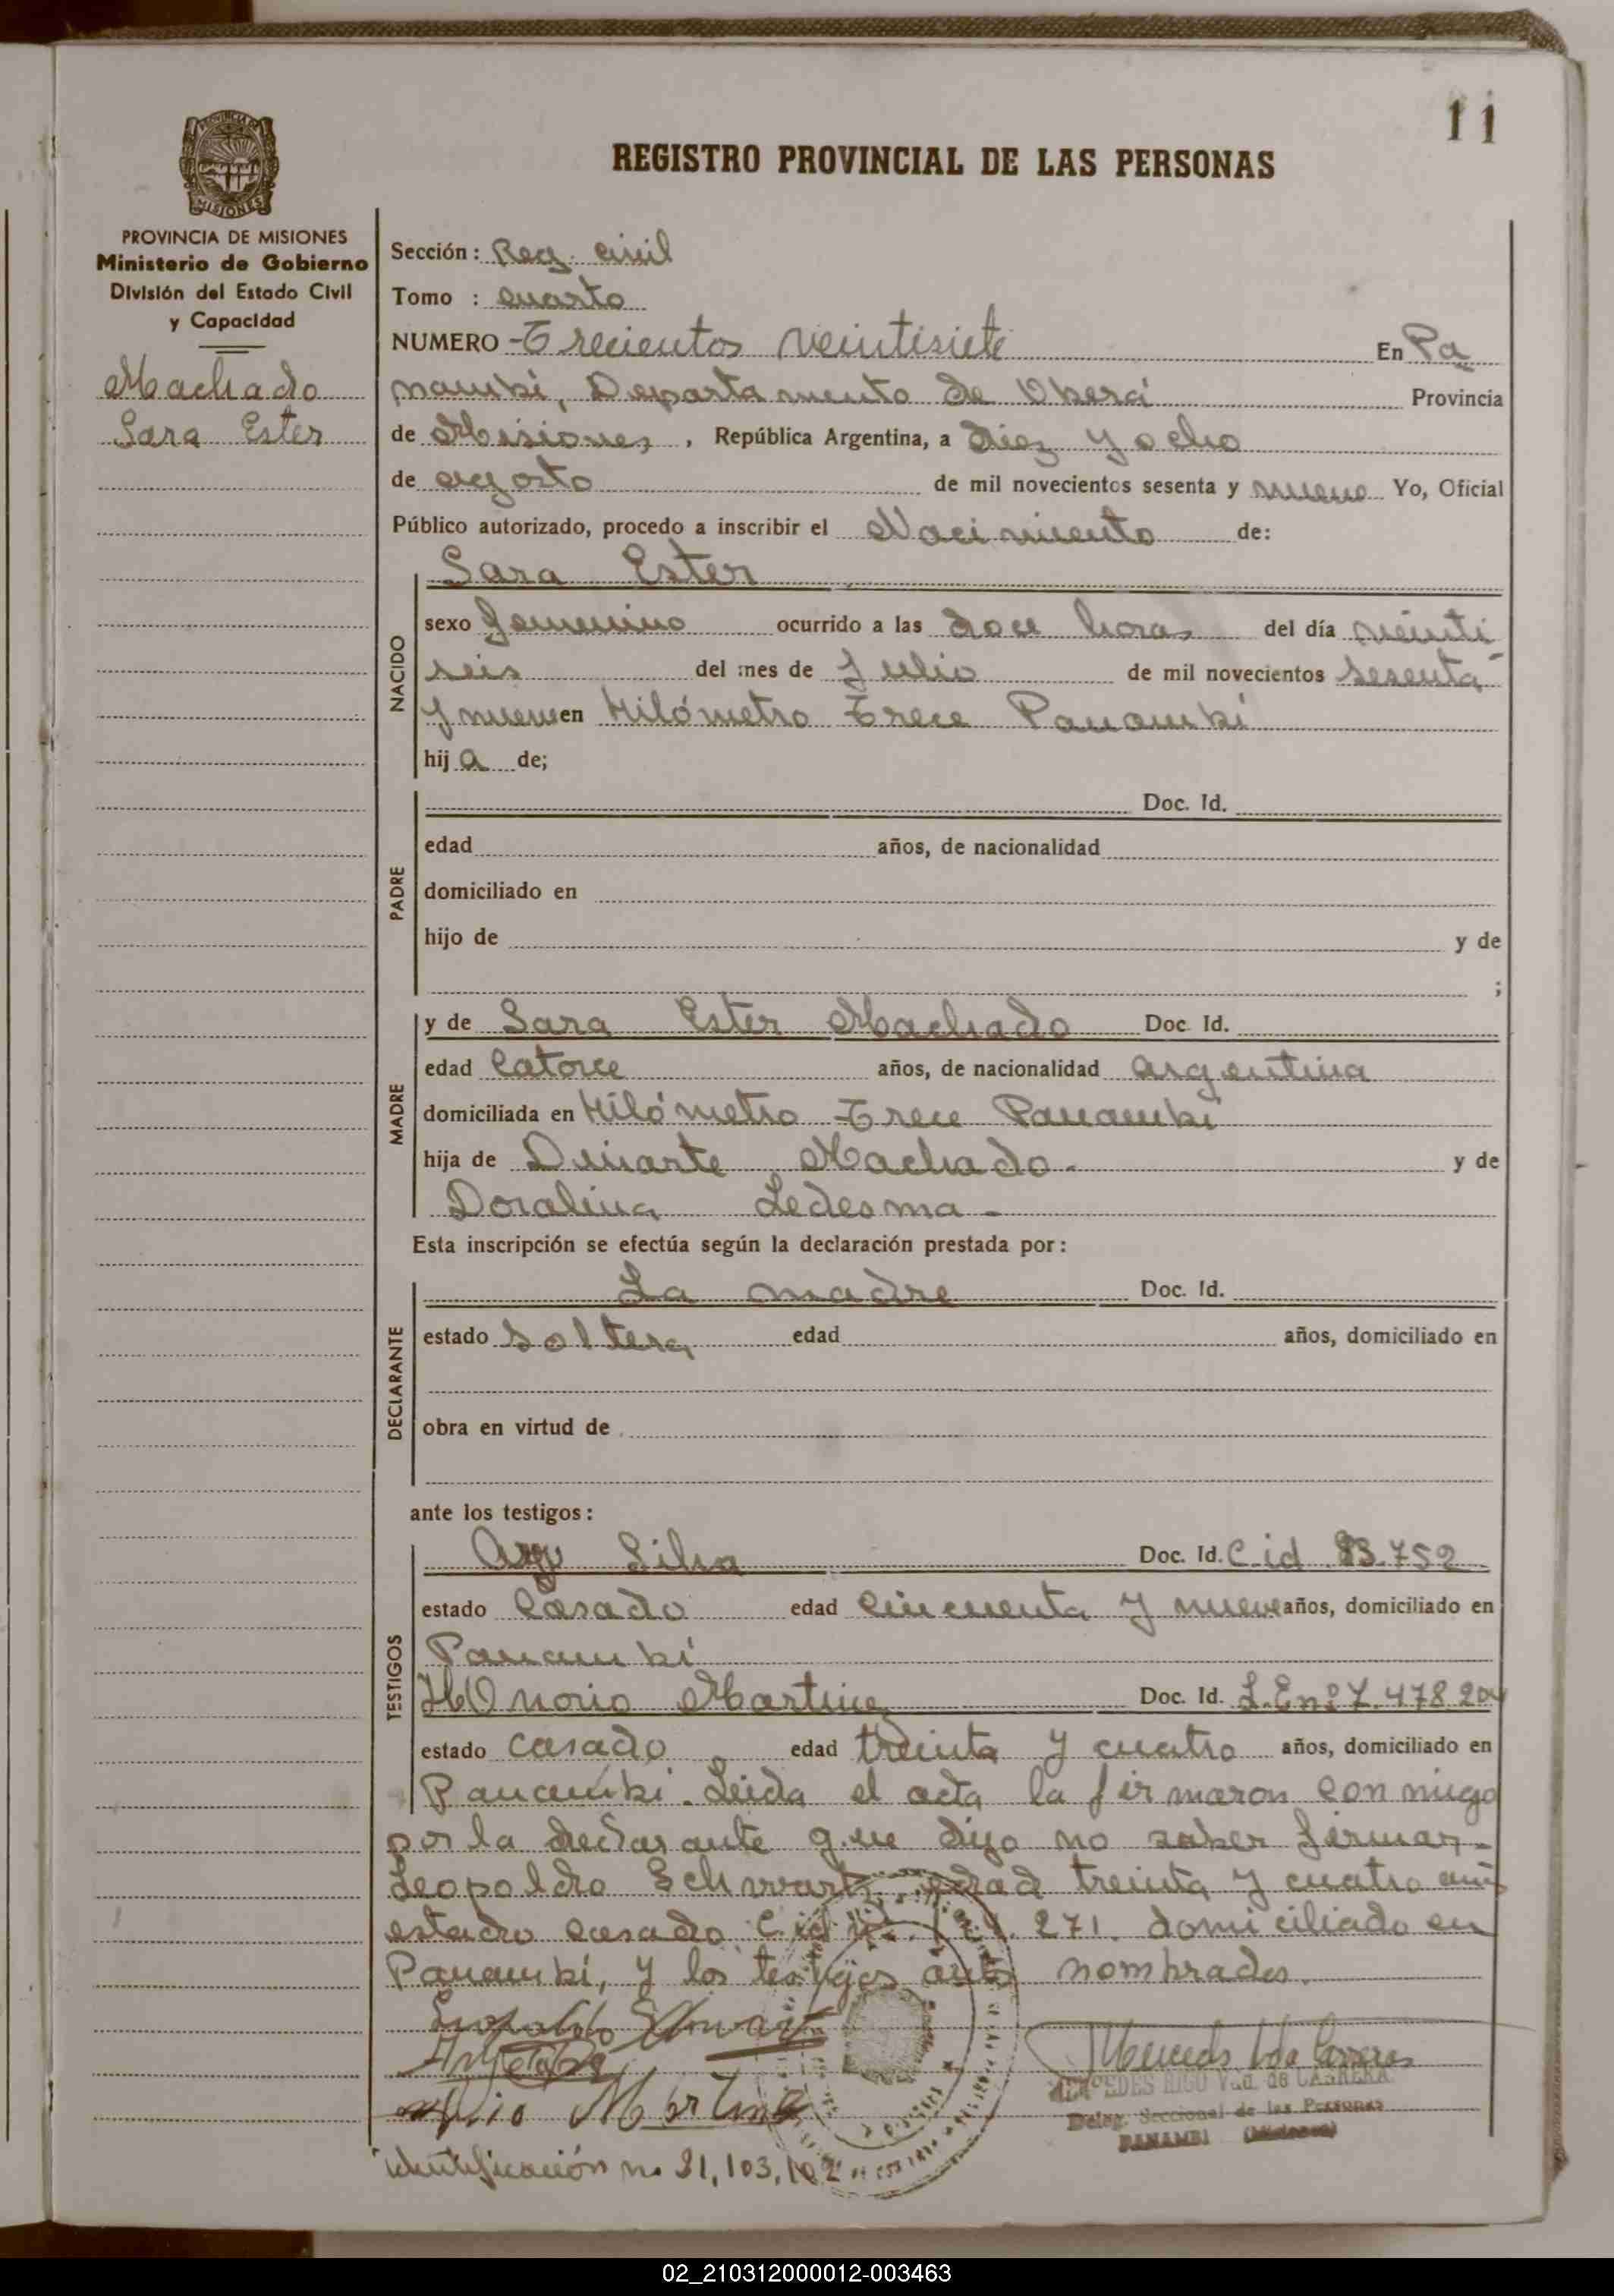 11
REGISTRO PROVINCIAL DE LAS PERSONAS
MISIONES
PROVINCIA DE MISIONES
Ministerio de Gobierno
División del Estado Civil
y Capacidad
Machado
Sara Ester
Sección: Reg. civil
Tomo : cuarto
NUMERO - Trecientos veintisiete En Pa
nambí, Departamento de Oberá Provincia
de Misiones, República Argentina, a diez y ocho
de agosto de mil novecientos sesenta y nueve Yo, Oficial
Público autorizado, procedo a inscribir el Nacimiento de:
Sara Ester
NACIDO
sexo femenino ocurrido a las doce horas del día veinti
seis del mes de Julio de mil novecientos sesenta
y nueve en Kilómetro Trece Panambí
hij a de;
PADRE
Doc. Id.
edad años, de nacionalidad
domiciliado en
hijo de y de
;
MADRE
y de Sara Ester Machado Doc Id.
edad Catorce años, de nacionalidad argentina
domiciliada en Kilómetro Trece Panambí
hija de Duarte Machado. y de
Doralina Ledesma -
Esta inscripción se efectúa según la declaración prestada por:
DECLARANTE
La madre Doc. Id.
estado Soltera edad años, domiciliado en
obra en virtud de
ante los testigos:
TESTIGOS
Silva Doc. Id. C. id 83.752
estado Casado edad Cincuenta y nueve años, domiciliado en
Panambí
HOnorio Martinez Doc. Id. L.E nº 7.478.204
estado casado edad treinta y cuatro años, domiciliado en
Panambí. Leida el acta la firmaron conmigo
por la declarante que dijo no saber firmar, -
Leopoldo Schwartz, edad treinta y cuatro años
estado casado C. id nº 271. domiciliado en
Panambí, y los testigos antes nombrados.
Leopoldo Schwartz
Martinez
MERCEDES RIGO Vda. de CABRERA
Deleg. Seccional de las Personas
PANAMBI (Misiones)
identificación no 21,103,102
02_210312000012-003463